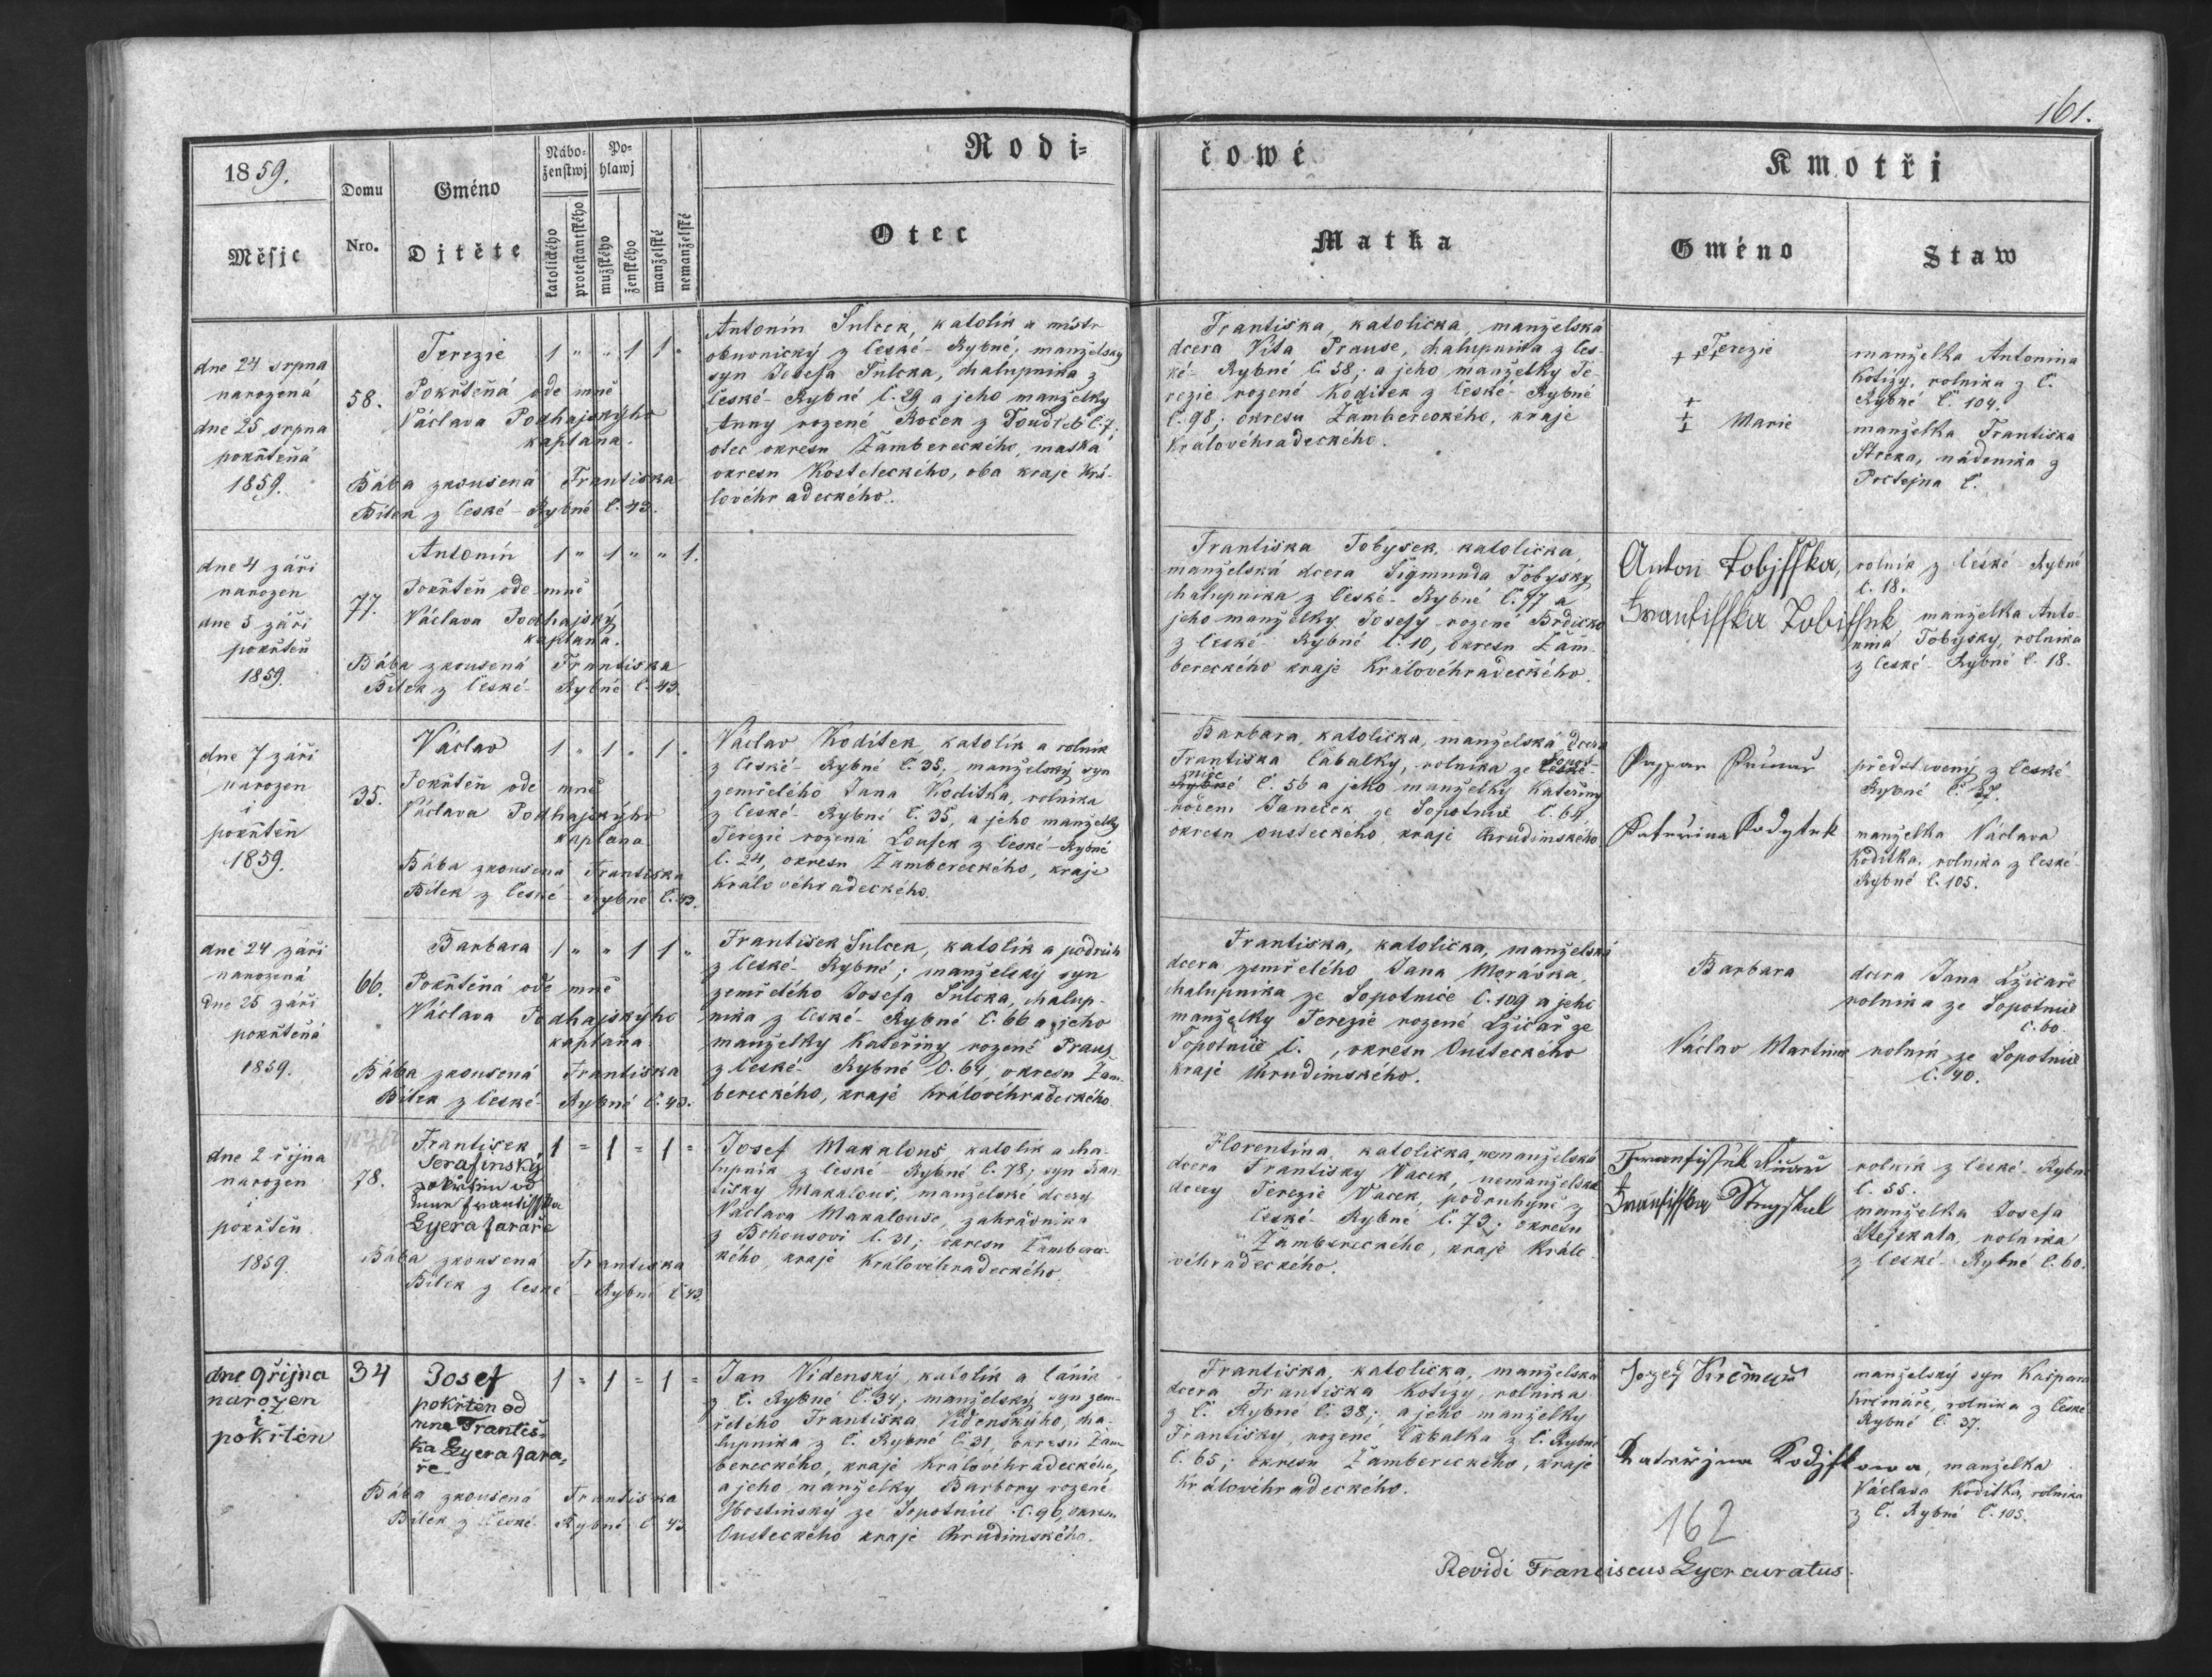 161.
1859.
Měsjc
Domu
Nro.
Gméno
Djtěte
Nábo-
ženstwj
Po-
hlawj
katolického
protestantského
mužského
ženského
manželské
nemanželské
Rodi-
čowé
Otec
Matka
Kmotři
Gméno
Staw
dne 24 srpna
narozená
dne 25 srpna
pokřtěňá
1859.
58.
Terezie 1 " " 1 1 "
Pokřtěňá ode mně
Václava Podhajskýho
kaplana.
Bába zkoušená Františka
Bílek z České-Rybné č. 43.
Antonín Šulcek, katolík a mistr
obuvnický z České-Rybné; manželský
syn Josefa Šulcka, chalupníka z
České-Rybné č. 29 a jeho manželky
Anny rozené Roček z Doudleb č. 7;
otec okresu Žambereckého, matka
okresu Kosteleckého, oba kraje Krá-
lovéhradeckého.
Františka, katolička, manželska
dcera Víta Prause, chalupníka z Čes-
ké-Rybné č. 58; a jeho manželky Te-
rezie rozené Koditek z České-Rybné
č. 98; okresu Žambereckého, kraje
Královéhradeckého.
+++ Terezie
+++ Marie
manželka Antonina
Kotizy, rolníka z Č.
Rybné č. 104.
manželka Františka
nádeníka z
č.
dne 4 září
narozen
dne 5 září
pokřtěň
1859.
77.
Antonín 1 " 1 " " 1.
Pokřtěň ode mně
Václava Podhajský
kaplana.
Bába zkoušená Františka
Bílek z České-Rybné č. 43.
Františka Tobyšek, katolička,
manželská dcera Sigmunda Tobyšky,
chalupníka z České-Rybné č. 77 a
jeho manželky Josefy rozené Brdičko
z České Rybné č. 10, okresu Žam-
bereckého kraje Královéhradeckého.
Anton Tobjsska,
Frantisska Tobissek
rolník z České-Rybné
č. 18.
manželka Anto-
nína Tobyšky, rolníka
z České-Rybné č. 18.
dne 7 září
narozen
i
pokřtěn
1859.
35.
Václav 1 " 1 " 1 "
Pokřtěň ode mně
Václava Podhajskýho
kaplana
Bába zkoušená Františka
Bílek z České-Rybné č. 43.
Václav Kodítek, katolík a rolník
z České-Rybné č. 35, manželský syn
zemřelého Jana Kodítka, rolníka
z České-Rybné č. 35, a jeho manželky
Terezie rozená Loufek z České-Rybné
č. 24, okresu Žambereckého, kraje
Královéhradeckého.
Barbara, katolička, manželská dcera
Františka Cabalky, rolníka ze Sopot-
nice č. 56 a jeho manželky Kateřiny
rození Janeček ze Sopotnice č. 64,
okresu ousteckého, kraje Chrudimského
Kodytek
představený z České
Rybné č. 37.
manželka Václava
Kodítka, rolníka z České-
Rybné č. 105.
dne 24 září
narozená
dne 25 září
pokřtěná
1859.
66.
Barbara 1 " " 1 1 "
Pokřtěná ode mně
Václava Podhajskýho
kaplana
Bába zkoušená Františka
Bílek z České-Rybné č. 43.
František Šulcek, katolík a podruh
z České-Rybné; manželský syn
zemřelého Josefa Šulcka, chalup-
níka z České-Rybné č. 66 a jeho
manželky Kateřiny rozené Praus
z České-Rybné č. 64, okresu Žam-
bereckého, kraje Královéhradeckého.
Františka, katolička, manželská
dcera zemřelého Jana Morávka,
chalupníka ze Sopotnice č. 109 a jeho
manželky Terezie rozené Lžičař ze
Sopotnice č. , okresu Ousteckého
kraje Chrudimského.
Barbara
Václav Martinec
dcera Jana Lžičaře
rolníka ze Sopotnice
č. 60.
rolník ze Sopotnice
č. 40.
dne 2 října
narozen
i
pokřtěn
1859.
78.
František 1 = 1 = 1 =
Serafinský
pokřtěn od
mne Frantisska
Lyera faráře
Bába zkoušená Františka
Bílek z České-Rybné č. 43.
Josef Makalous, katolík a cha-
lupník z České-Rybné č. 78; syn Fran-
tišky Makalous, manželské dcery
Václava Makalouse, zahradníka
z Bohousovi č. 31; okresu Žamberec-
kého, kraje Královéhradeckého.
Florentina, katolička, nemanželská
dcera Františky Vacek, nemanželské
dcery Terezie Vacek, podruhyně z
České-Rybné č. 73; okresu
Žambereckého, kraje Králo-
véhradeckého.
rolník z České-Rybné
č. 55.
manželka Josefa
Stejskala, rolníka
z České-Rybné č. 60.
dne 9 října
narozen
i
pokřtěn
34
Josef 1 = 1 = 1 =
pokřten od
mne Františ-
ka Lyera fara-
ře.
Bába zkoušená Františka
Bílek z České-Rybné č. 43
Jan Vídenský, katolík a láník
z Č. Rybné č. 34; manželský syn zem-
řelého Františka Vídenskýho, cha-
lupníka z Č. Rybné č. 31, okresu Žam-
bereckého, kraje Královéhradeckého,
a jeho manželky Barbory rozené
Hostinský ze Sopotnice č. 96, okresu
Ousteckého kraje Chrudimského.
Františka, katolička, manželská
dcera Františka Kotizy, rolníka
z Č. Rybné č. 38; a jeho manželky
Františky, rozené Cabalka z Č. Rybné
č. 65; okresu Žambereckého, kraje
Královéhradeckého.
manželský syn Kašpara
Krčmáře, rolníka z České
Rybné č. 37.
manželka
Václava Kodítka, rolníka
z Č. Rybné č. 105.
162
Revidi Franciscus Lyer curatus.